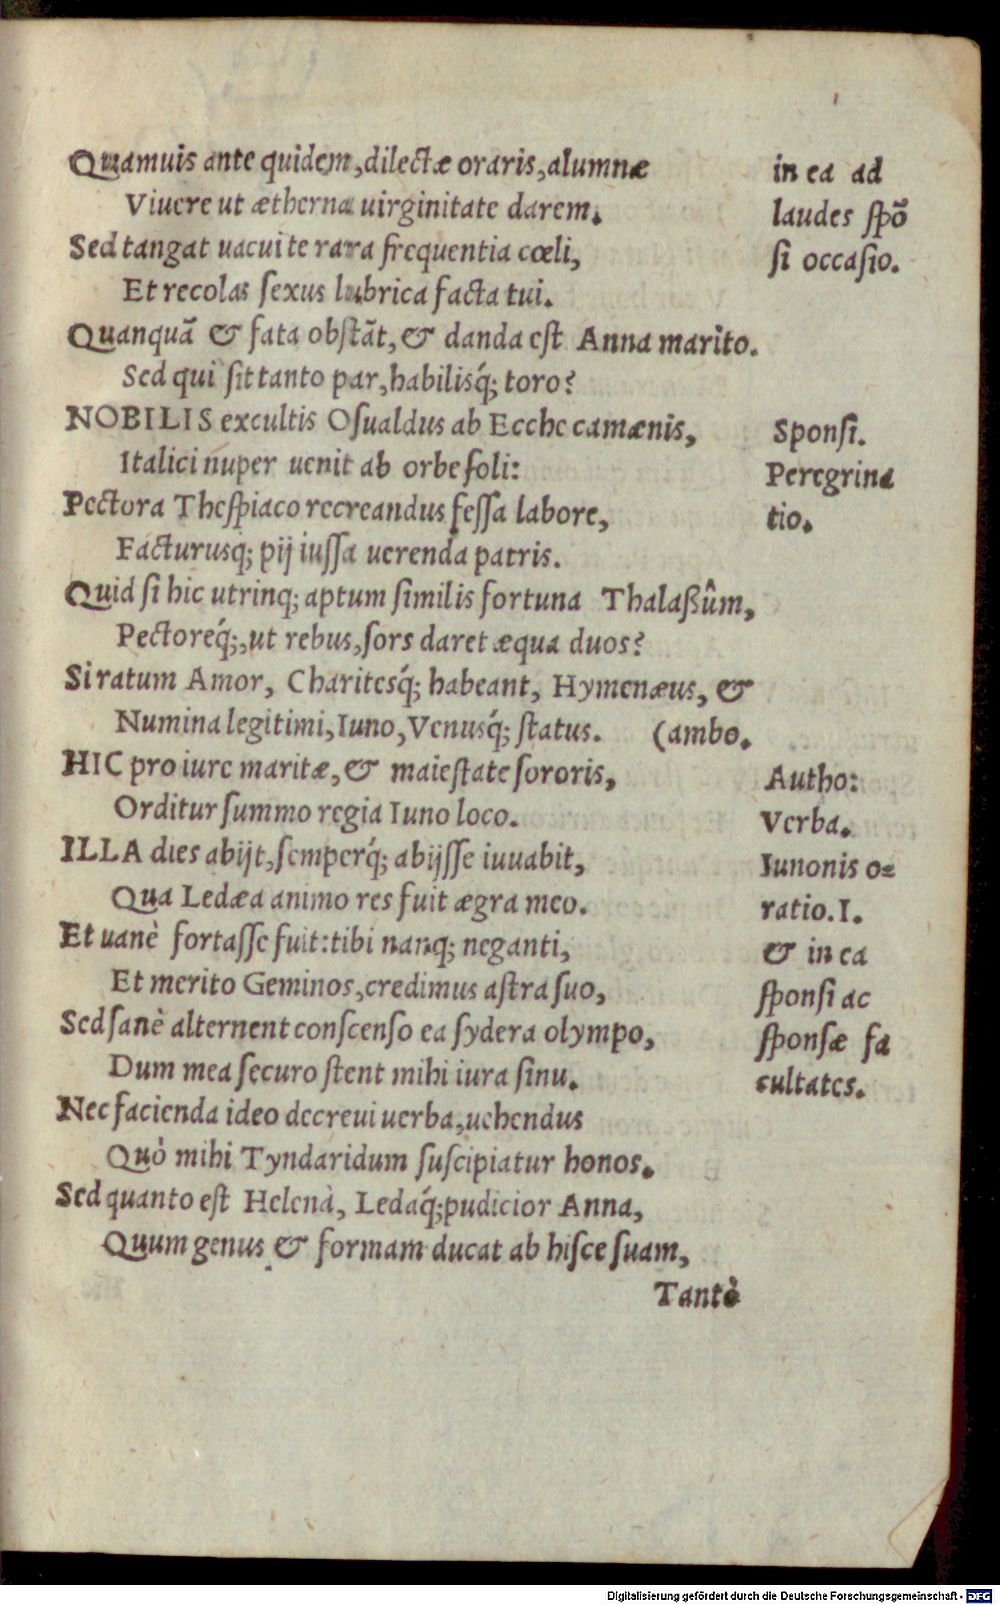 Quamuis ante quidem, dilectæ oraris, alumnæ
Viuere ut æthernæ uirginitate darem.
Sed tangat uacui te rara frequentia cœli,
Et recolas sexus lubrica facta tui.
Quanquã & fata obstãt, & danda est Anna marito.
Sed qui sit tanto par, habilisq́; toro?
NOBILIS excultis Osualdus ab Ecche camænis,
Italici nuper uenit ab orbe soli:
Pectora Thespiaco recreandus fessa labore,
Facturusq; pij iussa uerenda patris.
Quid si hic utrinq; aptum similis fortuna Thalaßûm,
Pectoreq́;, ut rebus, sors daret æqua duos?
Si ratum Amor, Charitesq́; habeant, Hymenæus, &
Numina legitimi, Iuno, Venusq́; status. (ambo.
HIC pro iure maritæ, & maiestate sororis,
Orditur summo regia Iuno loco.
ILLA dies abijt, semperq́; abijsse iuuabit,
Qua Ledæa animo res fuit ægra meo.
Et uanè fortasse fuit: tibi nanq; neganti,
Et merito Geminos, credimus astra suo,
Sed sanè alternent conscenso ea sydera olympo,
Dum mea securo stent mihi iura sinu.
Nec facienda ideo decreui uerba, uehendus
Quò mihi Tyndaridum suscipiatur honos.
Sed quanto est Helenà, Ledaq́; pudicior Anna,
Quum genus & formam ducat ab hisce suam,
Tantò
in ea ad
laudes spõ
si occasio.
Sponsi.
Peregrina
tio.
Autho:
Verba.
Iunonis o=
ratio. I.
& in ea
sponsi ac
sponsæ fa
cultates.
Digitalisierung gefördert durch die Deutsche Forschungsgemeinschaft - DFG